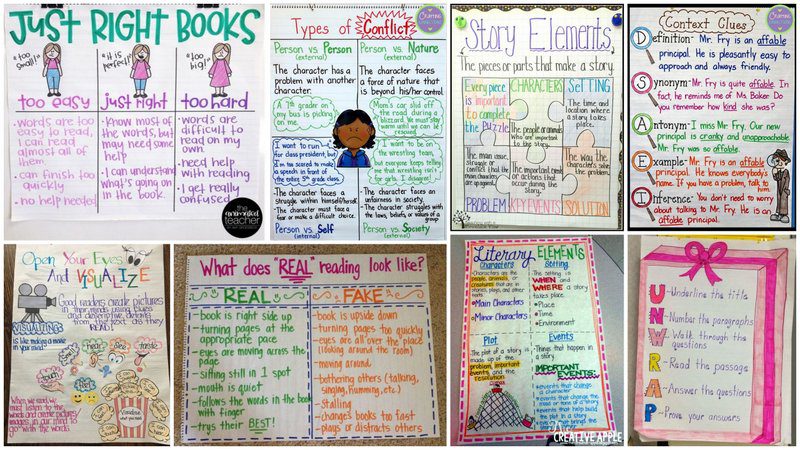 JUST RIGHT BOOKS
"too small!"
"it is perfect!"
"too big!"
too easy
just right
too hard
-Words are too
easy to read,
I can read
almost all of
them.
-can finish too
quickly
-no help needed
-Know most of
the words, but
may need some
help
-I can understand
what's going on in
the book.
-words are
difficult to
read on my
own.
-need help
with reading
-I get really
confused
the
animated
teacher
Types of Conflict
Person vs. Person
(external)
The character has a
problem with another
character.
A 7th grader on
my bus is picking
on me.
I want to run
for class president, but
I'm too scared to make
a speech in front of
the entire 5th grade class.
The character faces a
struggle within himself/herself.
The character must face a
fear or make a difficult choice.
Person vs. Self
(internal)
Person vs. Nature
(external)
The character faces
a force of nature that
is beyond his/her control.
Mom's car slid off
the road during a
blizzard. We must stay
warm until we can be
rescued.
I want to be on
the wrestling team,
but everyone keeps telling
me that wrestling isn't
for girls. I disagree!
The character faces an
unfairness in society.
The character struggles with
the laws, beliefs, or values of a
group.
Person vs. Society
(external)
Story Elements
The pieces or parts that make a story.
Every piece
is important
to complete
the puzzle.
CHARACTERS
The people or animals
who are important
to the story.
SETTING
The time and
location where
a story takes
place.
The main issue,
struggle or conflict
that the main
characters
PROBLEM
The important
events or actions
that occur during
the story.
KEY EVENTS
The way the
characters solve
the problem.
SOLUTION
Context Clues
Definition- Mr. Fry is an affable
principal. He is pleasantly easy to
approach and always friendly.
Synonym- Mr. Fry is quite affable. In
fact, he reminds me of Ms. Baker. Do
you remember how kind she was?
Antonym- I miss Mr. Fry. Our new
principal is cranky and unapproachable.
Mr. Fry was so affable.
Example- Mr. Fry is an affable
principal. He knows everybody's
name. If you have a problem, talk to
him.
Inference- You don't need to worry
about talking to Mr. Fry. He is an
affable principal.
Open Your Eyes
And VISUALIZE
Good readers create pictures
in their minds using clues
and descriptive details
from the text as they
READ!
VISUALIZING
is like making a movie
in your mind!
When we read, we
must listen to the
words and create pictures/
images in our mind to
go with the words.
What does "REAL" reading look like?
REAL
-book is right side up
-turning pages at the
appropriate pace
-eyes are moving across the
page
-sitting still in 1 spot
-mouth is quiet
-follows the words in the book
with finger
-trys their BEST!
FAKE
-book is upside down
-turning pages too quickly
-eyes are all over the place
(looking around the room)
-moving around
-bothering others (talking,
singing, humming, etc.)
-Stalling
-changes books too fast
-plays or distracts others
Literary ELEMENTS
Characters
-Characters are the
people, animals, or
creatures that are in
stories, plays, and other
works.
Main Characters
Minor Characters
Setting
-The setting is
WHEN and
WHERE a story
takes place.
Place
Time
Environment
Plot
-The plot of a story is
made up of the
problem, important
events, and the
resolution
Events
-Things that happen in
a story.
IMPORTANT
EVENTS:
events that change a
character
events that change the
mood or tone of a story
events that help build
the plot in a story
CREATIVE APPLE
UNWRAP
-Underline the title
-Number the paragraphs
-Walk through the
questions
-Read the passage
-Answer the questions
-Prove your answers